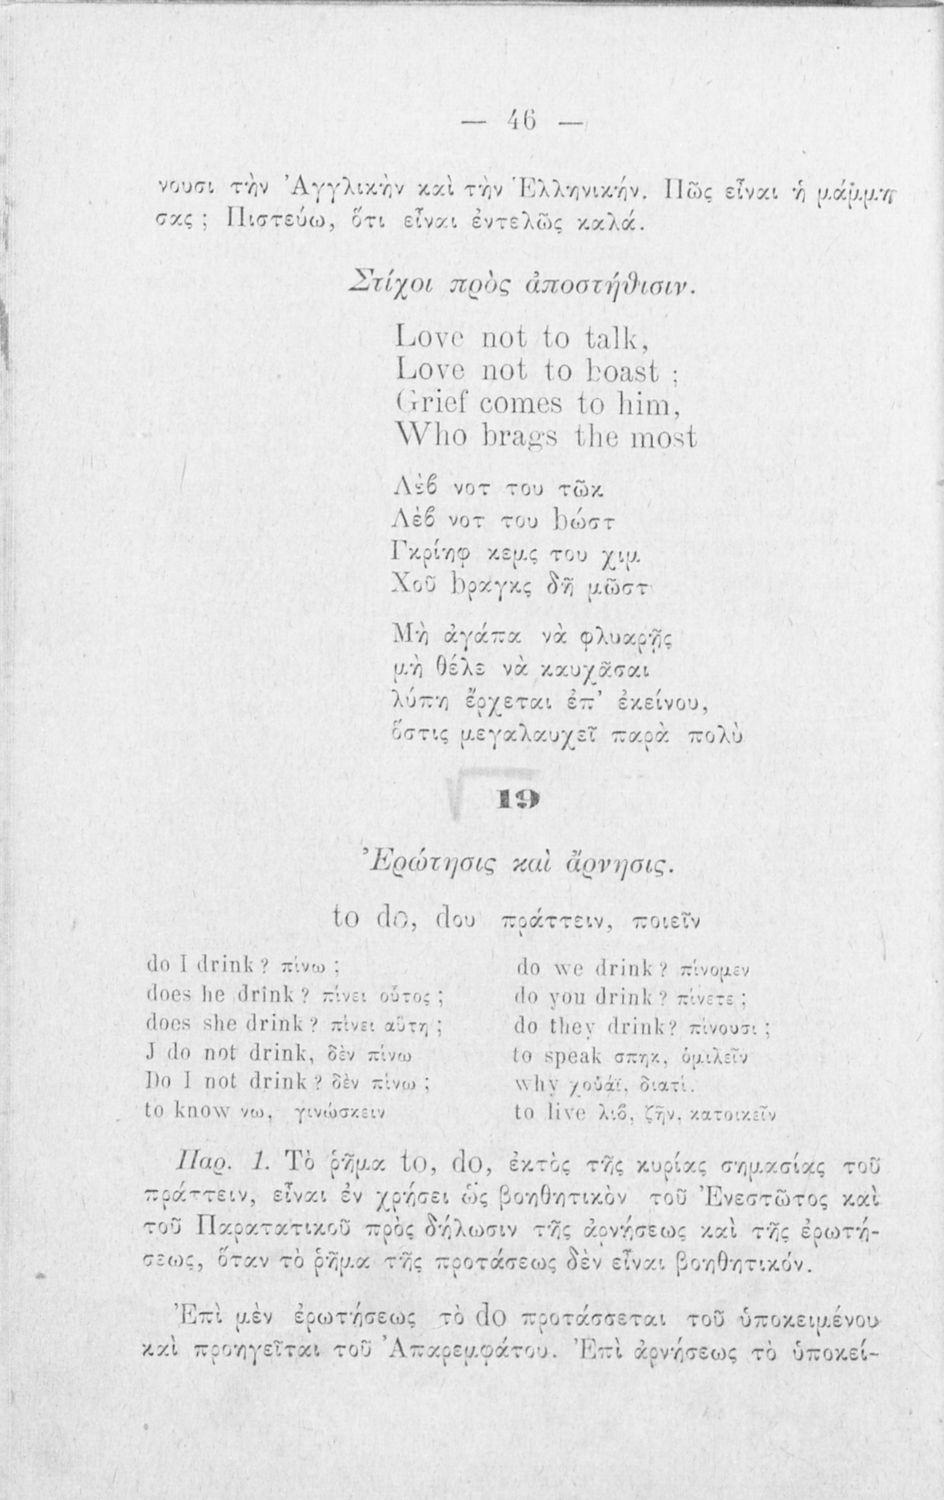 — 46 —
νουσι τὴν Ἀγγλικὴν καὶ τὴν Ἑλληνικήν. Πῶς εἶναι ἡ μάμμη
σας ; Πιστεύω, ὅτι εἶναι ἐντελῶς καλά.
Στίχοι πρὸς ἀποστήθισιν.
Love not to talk,
Love not to boast ;
Grief comes to him,
Who brags the most
Λὲβ νοτ του τῶκ
Λὲβ νοτ του bώστ
Γκρίηφ κεμς του χιμ
Χοῦ bραγκς δῆ μῶστ
Μὴ ἀγάπα νὰ φλυαρῇς
μὴ θέλε νὰ καυχᾶσαι
λύπη ἔρχεται ἐπ’ ἐκείνου,
ὅστις μεγαλαυχεῖ παρὰ πολὺ
19
Ἐρώτησις καὶ ἄρνησις.
to do, dου πράττειν, ποιεῖν
do I drink ? πίνω ;
does he drink ? πίνει οὗτος ;
does she drink ? πίνει αὕτη ;
J do not drink, δὲν πίνω
Do I not drink ? δὲν πίνω ;
to know νω, γινώσκειν
do we drink ? πίνομεν
do you drink ? πίνετε ;
do they drink? πίνουσι ;
to speak σπηκ, ὁμιλεῖν
why χουάϊ, διατί.
to live λιβ, ζῆν, κατοικεῖν
Παρ. 1. Τὸ ῥῆμα to, do, ἐκτὸς τῆς κυρίας σημασίας τοῦ
πράττειν, εἶναι ἐν χρήσει ὡς βοηθητικὸν τοῦ Ἐνεστῶτος καὶ
τοῦ Παρατατικοῦ πρὸς δήλωσιν τῆς ἀρνήσεως καὶ τῆς ἐρωτή-
σεως, ὅταν τὸ ῥῆμα τῆς προτάσεως δὲν εἶναι βοηθητικόν.
Ἐπὶ μὲν ἐρωτήσεως τὸ do προτάσσεται τοῦ ὑποκειμένου
καὶ προηγεῖται τοῦ Ἀπαρεμφάτου. Ἐπὶ ἀρνήσεως τὸ ὑποκεί-